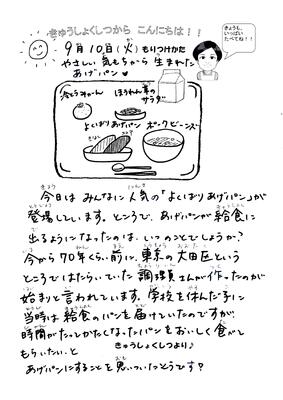 きゅうしょくしつから こんにちは！！
きょうも、
いっぱい
たべてね！！
9月10日(火) もりつけかた
やさしい 気もちから 生まれた
あげパン
冷とうみかん
ほうれん草の
サラダ
よくばりあげパン
ポークビーンズ
今日は みんなに人気の「よくばりあげパン」が
登場しています。ところで、あげパンが給食に
出るようになったのは、いつのことでしょうか？
今から70年くらい前に、東京の大田区という
ところではたらいていた調理員さんが作ったのが
始まりと言われています。学校を休んだ子に
当時は給食のパンを届けていたのですが、
時間がたってかたくなったパンをおいしく食べて
もらいたい、と
きゅうしょくしつより♪
あげパンにすることを思いついたそうです？